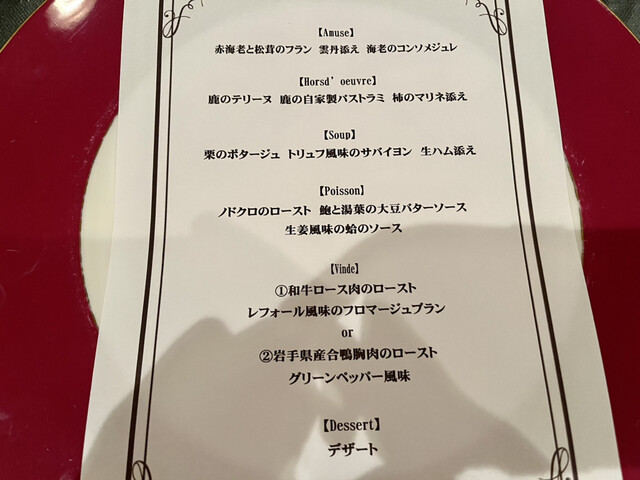 【Amuse】
赤海老と松茸のフラン 雲丹添え 海老のコンソメジュレ
【Horsd' oeuvre】
鹿のテリーヌ 鹿の自家製パストラミ 柿のマリネ添え
【Soup】
栗のポタージュ トリュフ風味のサバイヨン 生ハム添え
【Poisson】
ノドクロのロースト 鮑と湯葉の大豆バターソース
生姜風味の蛤のソース
【Vinde】
①和牛ロース肉のロースト
レフォール風味のフロマージュブラン
or
②岩手県産合鴨胸肉のロースト
グリーンペッパー風味
【Dessert】
デザート